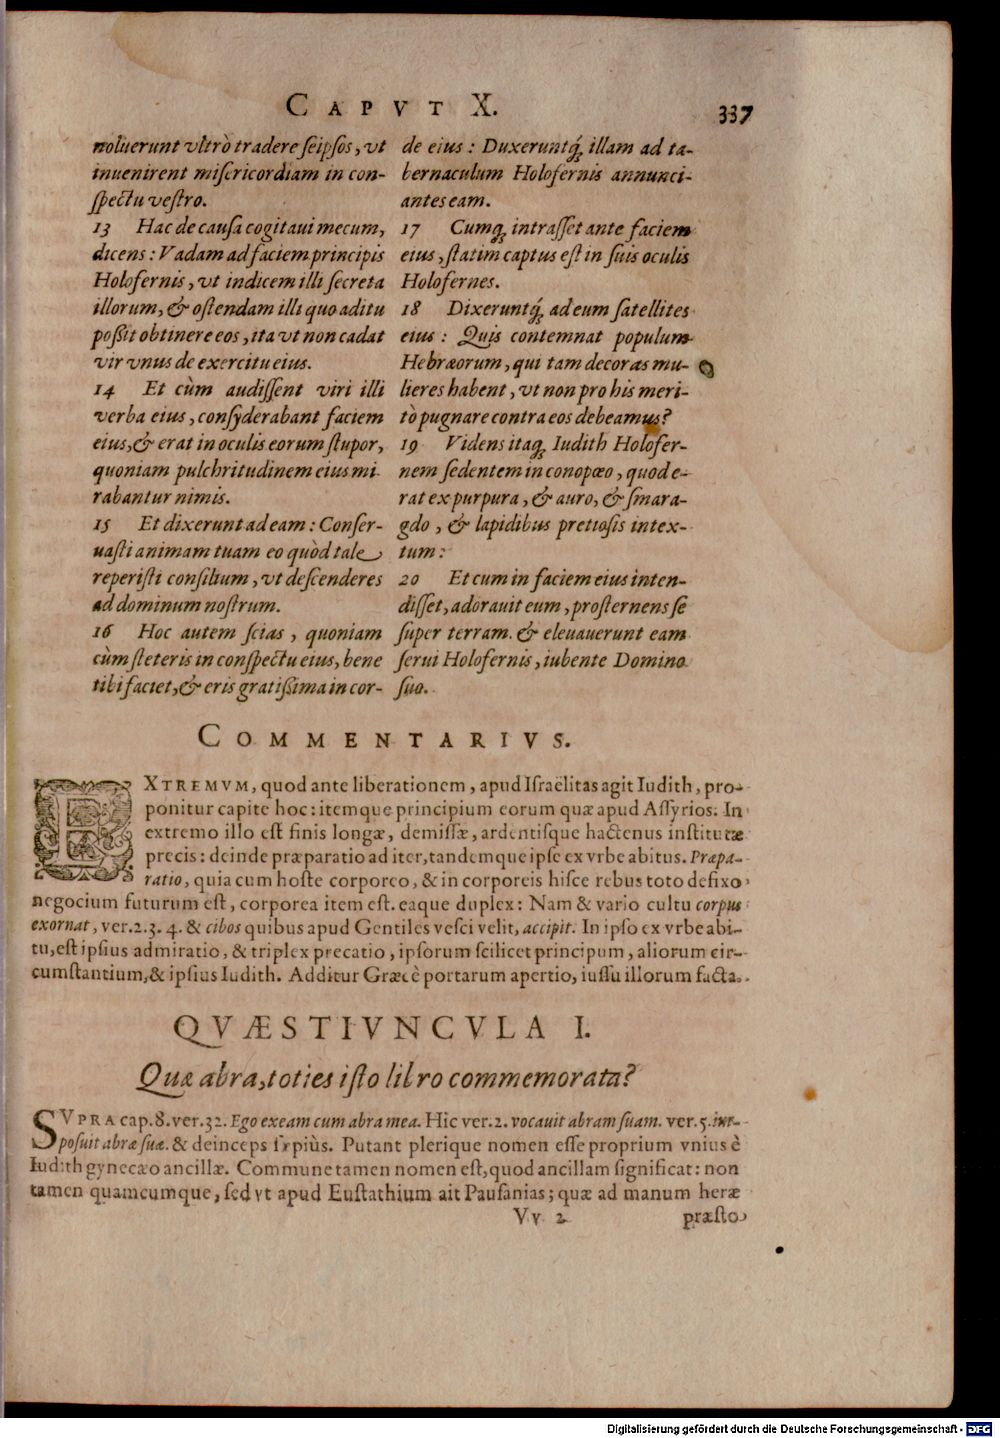 CAPVT X.
337
noluerunt vltrò tradere seipsos, vt
inuenirent misericordiam in con-
spectu vestro.
13 Hac de causa cogitaui mecum,
dicens: Vadam ad faciem principis
Holofernis, vt indicem illi secreta
illorum, & ostendam illi quo aditu
possit obtinere eos, ita vt non cadat
vir vnus de exercitu eius.
14 Et cùm audissent viri illi
verba eius, consyderabant faciem
eius, & erat in oculis eorum stupor,
quoniam pulchritudinem eius mi
rabantur nimis.
15 Et dixerunt ad eam: Conser-
uasti animam tuam eo quòd tale
reperisti consilium, vt descenderes
ad dominum nostrum.
16 Hoc autem scias, quoniam
cùm steteris in conspectu eius, bene
tibi faciet, & eris gratissima in cor-
de eius: Duxeruntq́; illam ad ta-
bernaculum Holofernis annunci-
antes eam.
17 Cumq; intrasset ante faciem
eius, statim captus est in suis oculis
Holofernes.
18 Dixeruntq́; ad eum satellites
eius: Quis contemnat populum
Hebræorum, qui tam decoras mu-
lieres habent, vt non pro his meri-
tò pugnare contra eos debeamus?
19 Videns itaq; Iudith Holofer-
nem sedentem in conopœo, quod e-
rat ex purpura, & auro, & smara-
gdo, & lapidibus pretiosis intex-
tum:
20 Et cum in faciem eius inten-
disset, adorauit eum, prosternens se
super terram. & eleuauerunt eam
serui Holofernis, iubente Domino
suo.
COMMENTARIVS.
EXTREMVM, quod ante liberationem, apud Israëlitas agit Iudith, pro-
ponitur capite hoc: itemque principium eorum quæ apud Assyrios. In
extremo illo est finis longæ, demissæ, ardentisque hactenus institutæ
precis: deinde præparatio ad iter, tandemque ipse ex vrbe abitus. Præpa-
ratio, quia cum hoste corporeo, & in corporeis hisce rebus toto defixo
negocium futurum est, corporea item est. eaque duplex: Nam & vario cultu corpus
exornat, ver. 2. 3. 4. & cibos quibus apud Gentiles vesci velit, accipit. In ipso ex vrbe abi-
tu, est ipsius admiratio, & triplex precatio, ipsorum scilicet principum, aliorum cir-
cumstantium, & ipsius Iudith. Additur Græcè portarum apertio, iussu illorum facta.
QVÆSTIVNCVLA I.
Quæ abra, toties isto libro commemorata?
SVPRA cap. 8. ver. 32. Ego exeam cum abra mea. Hic ver. 2. vocauit abram suam. ver. 5. im-
posuit abræ suæ. & deinceps sæpiùs. Putant plerique nomen esse proprium vnius è
Iudith gynecæo ancillæ. Commune tamen nomen est, quod ancillam significat: non
tamen quamcumque, sed vt apud Eustathium ait Pausanias; quæ ad manum heræ
Vv 2
præsto
Digitalisierung gefördert durch die Deutsche Forschungsgemeinschaft - DFG